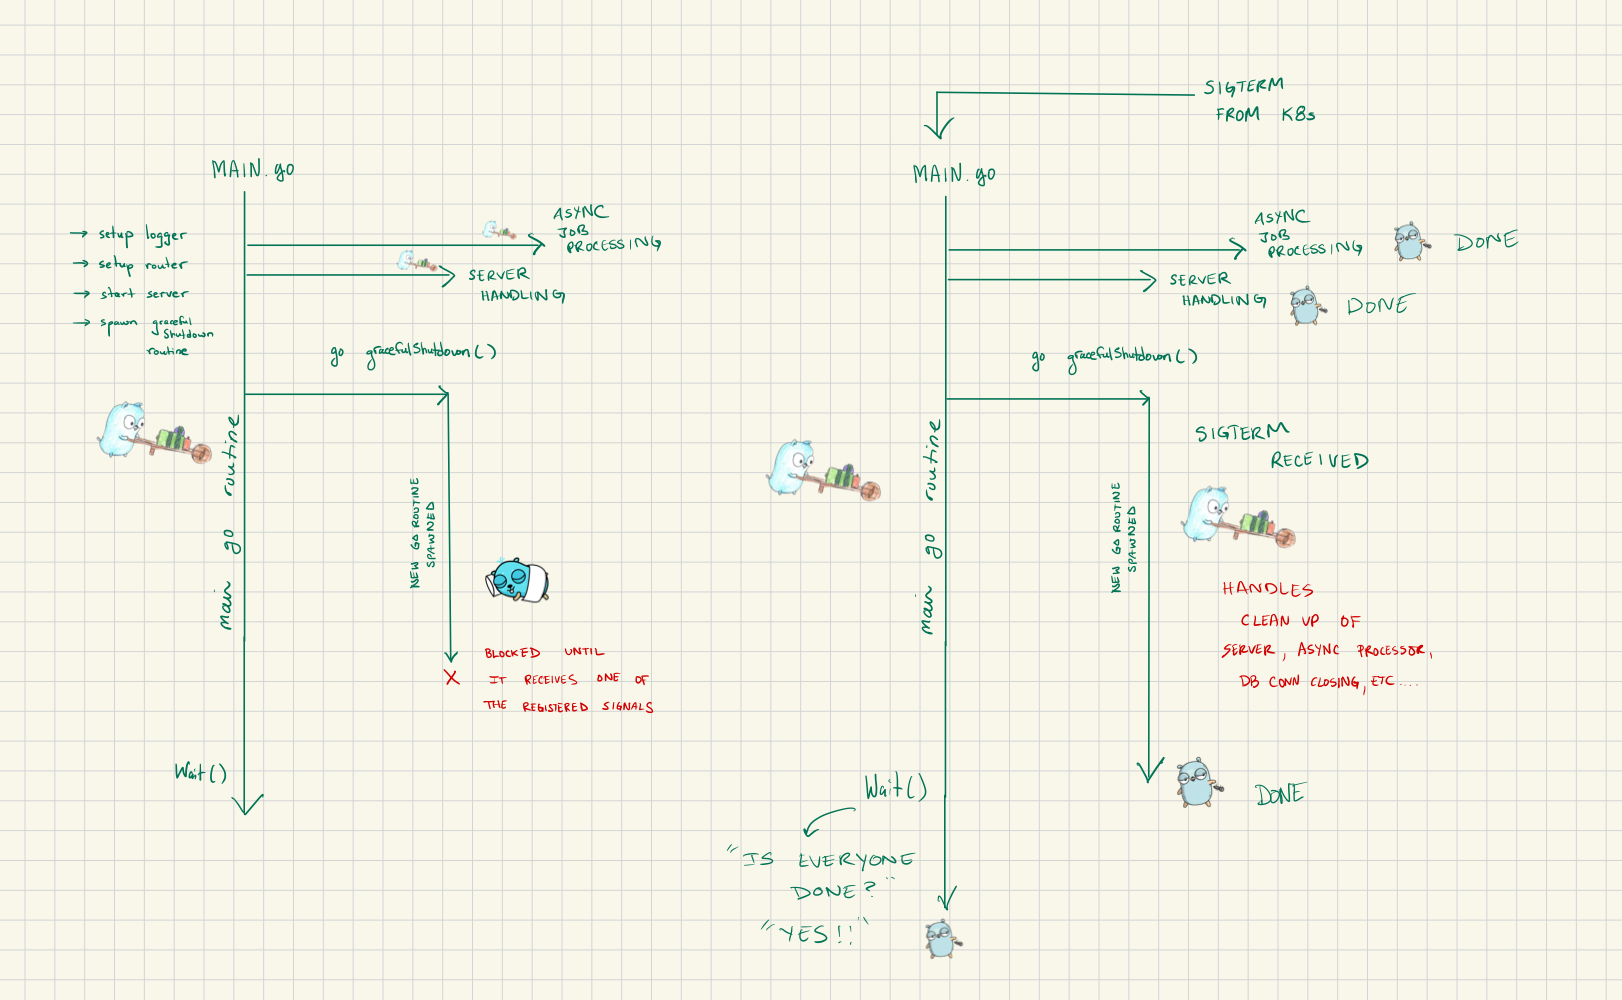 MAIN.go
→ setup logger
→ setup router
→ start server
→ spawn graceful
Shutdown
routine
ASYNC
JOB
PROCESSING
SERVER
HANDLING
go gracefulShutdown()
main go routine
NEW GO ROUTINE
SPAWNED
X
BLOCKED UNTIL
IT RECEIVES ONE OF
THE REGISTERED SIGNALS
Wait()
SIGTERM
FROM K8s
MAIN.go
ASYNC
JOB
PROCESSING
DONE
SERVER
HANDLING
DONE
go gracefulShutdown()
main go routine
NEW GO ROUTINE
SPAWNED
SIGTERM
RECEIVED
HANDLES
CLEAN UP OF
SERVER, ASYNC PROCESSOR,
DB CONN CLOSING, ETC....
DONE
Wait()
"IS EVERYONE
DONE?"
"YES!!"